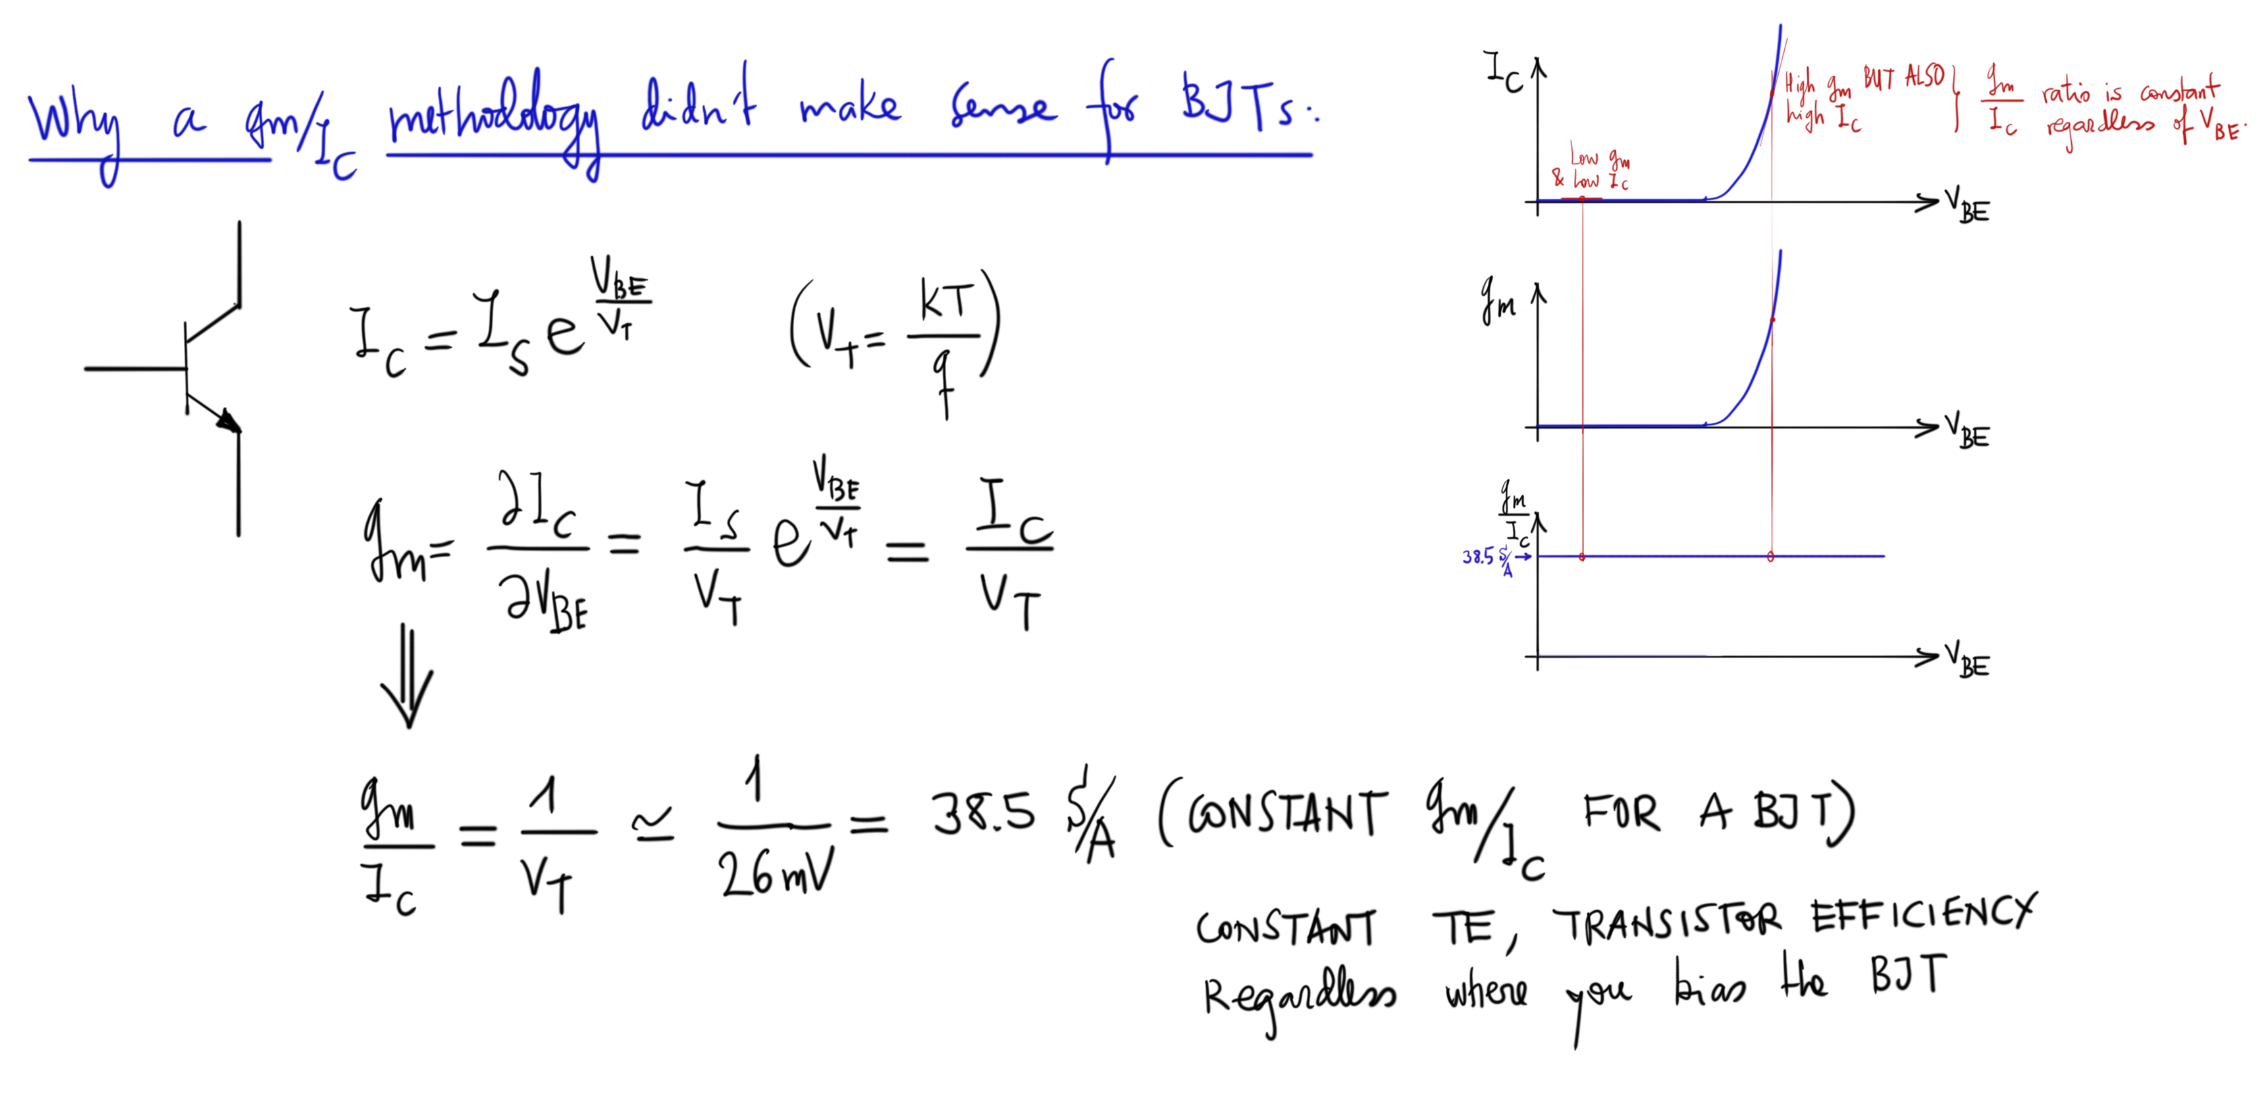 Why a gm/I_C methodology didn't make sense for BJTs:
I_C = I_S e^(V_BE/V_T) (V_T = KT/q)
gm = ∂I_C/∂V_BE = I_S/V_T e^(V_BE/V_T) = I_C/V_T
⇓
gm/I_C = 1/V_T ≃ 1/26mV = 38.5 S/A (CONSTANT gm/I_C FOR A BJT)
CONSTANT TE, TRANSISTOR EFFICIENCY
Regardless where you bias the BJT
I_C
High gm BUT ALSO
high I_C
gm/I_C ratio is constant
regardless of V_BE.
Low gm
& Low I_C
V_BE
gm
V_BE
gm/I_C
38.5 S/A →
V_BE